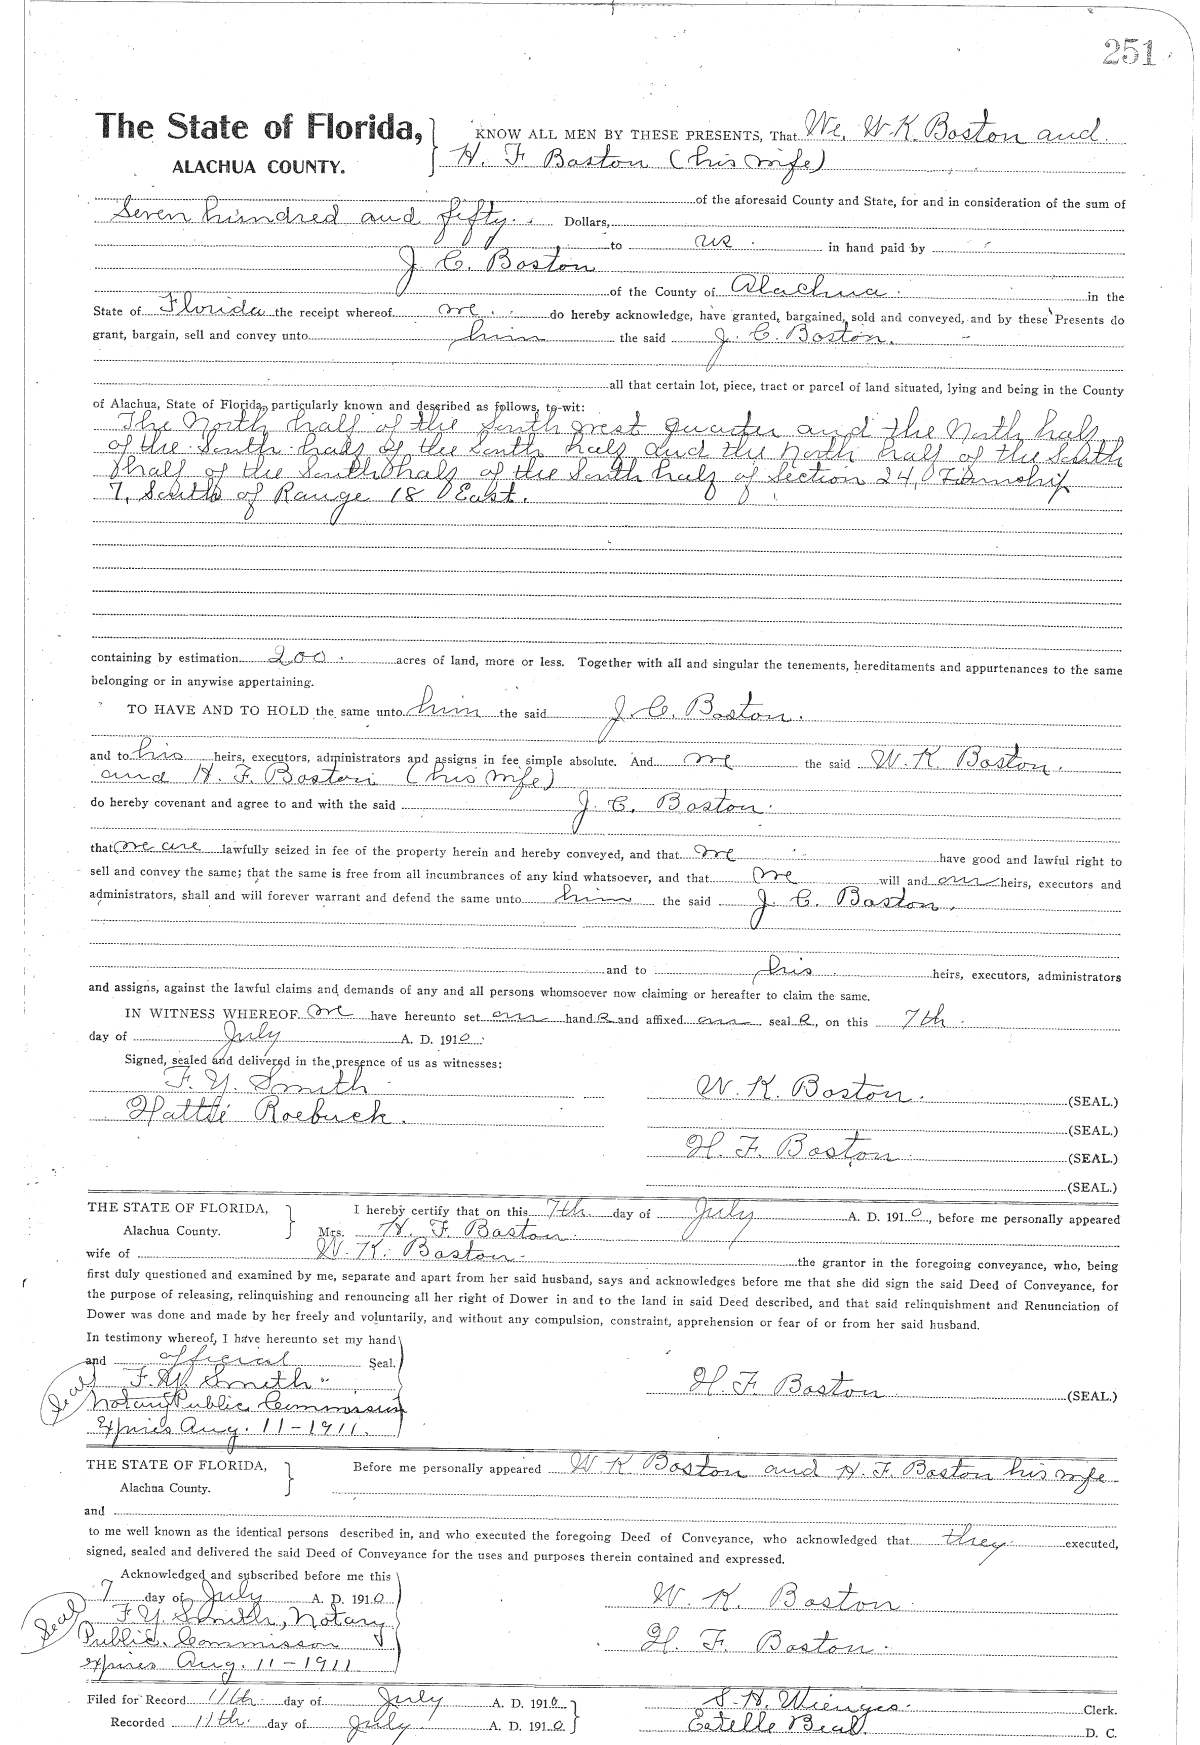 251
The State of Florida, KNOW ALL MEN BY THESE PRESENTS, That We, W. K. Boston and
ALACHUA COUNTY. H. F Boston (his wife)
of the aforesaid County and State, for and in consideration of the sum of
Seven hundred and fifty Dollars,
to us in hand paid by
J. C. Boston
of the County of Alachua in the
State of Florida the receipt whereof we do hereby acknowledge, have granted, bargained, sold and conveyed, and by these Presents do
grant, bargain, sell and convey unto him the said J. C. Boston.
all that certain lot, piece, tract or parcel of land situated, lying and being in the County
of Alachua, State of Florida, particularly known and described as follows, to-wit:
The North half of the South west quarter and the North half
of the South half of the South half and the North half of the South
half of the South half of the South half of Section 24, Township
7, South of Range 18 East.
containing by estimation 200 acres of land, more or less. Together with all and singular the tenements, hereditaments and appurtenances to the same
belonging or in anywise appertaining.
TO HAVE AND TO HOLD the same unto him the said J. C. Boston.
and to his heirs, executors, administrators and assigns in fee simple absolute. And we the said W. K. Boston.
and H. F. Boston (his wife)
do hereby covenant and agree to and with the said J. C. Boston.
that we are lawfully seized in fee of the property herein and hereby conveyed, and that we have good and lawful right to
sell and convey the same; that the same is free from all incumbrances of any kind whatsoever, and that we will and our heirs, executors and
administrators, shall and will forever warrant and defend the same unto him the said J. C. Boston.
and to his heirs, executors, administrators
and assigns, against the lawful claims and demands of any and all persons whomsoever now claiming or hereafter to claim the same.
IN WITNESS WHEREOF we have hereunto set our hand s and affixed our seal s, on this 7th
day of July A. D. 1910.
Signed, sealed and delivered in the presence of us as witnesses:
F. Y. Smith W. K. Boston. (SEAL.)
Hattie Roebuck. (SEAL.)
H. F. Boston (SEAL.)
(SEAL.)
THE STATE OF FLORIDA, I hereby certify that on this 7th day of July A. D. 1910, before me personally appeared
Alachua County. Mrs. H. F. Boston
wife of W. K. Boston the grantor in the foregoing conveyance, who, being
first duly questioned and examined by me, separate and apart from her said husband, says and acknowledges before me that she did sign the said Deed of Conveyance, for
the purpose of releasing, relinquishing and renouncing all her right of Dower in and to the land in said Deed described, and that said relinquishment and Renunciation of
Dower was done and made by her freely and voluntarily, and without any compulsion, constraint, apprehension or fear of or from her said husband.
In testimony whereof, I have hereunto set my hand
and official Seal.
Seal F. Y. Smith H. F Boston (SEAL.)
Notary Public. Commission
Expires Aug. 11-1911.
THE STATE OF FLORIDA, Before me personally appeared W K Boston and H. F. Boston his wife
Alachua County.
and
to me well known as the identical persons described in, and who executed the foregoing Deed of Conveyance, who acknowledged that they executed,
signed, sealed and delivered the said Deed of Conveyance for the uses and purposes therein contained and expressed.
Acknowledged and subscribed before me this
7 day of July A. D. 1910 W. K. Boston
Seal F. Y. Smith, Notary
Public. Commisson H. F. Boston.
Expires Aug. 11-1911
Filed for Record 11th day of July A. D. 1910 S. H. Wienges. Clerk.
Recorded 11th day of July A. D. 1910 Estelle Beal D. C.